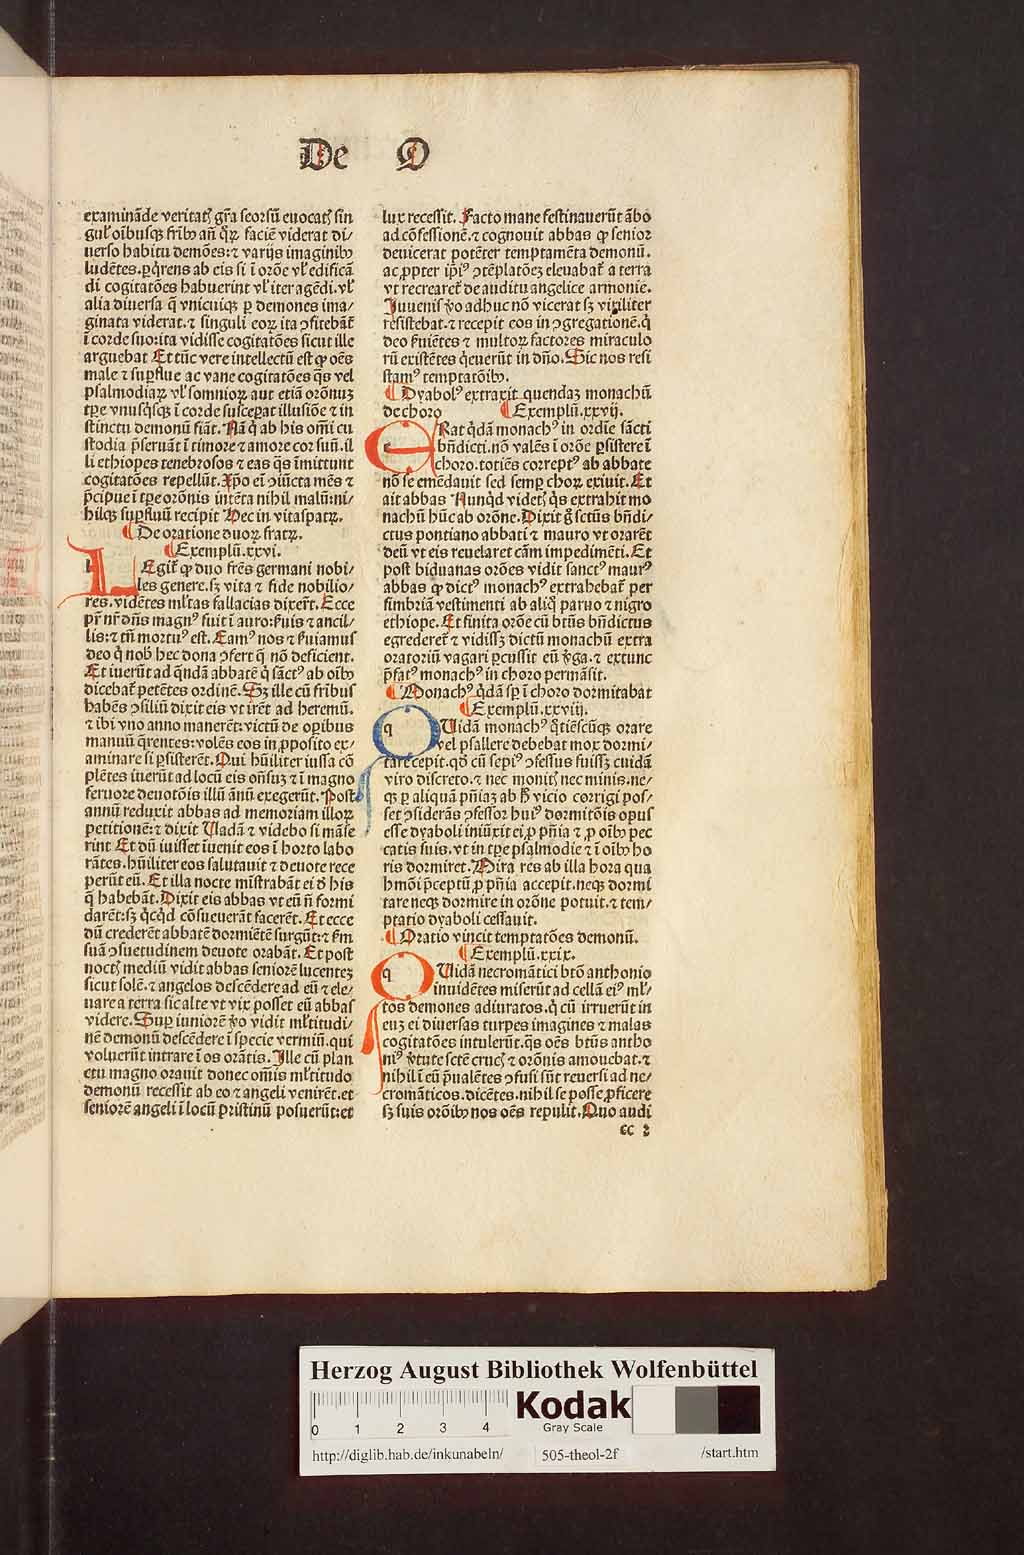 De O
examinãde veritatꝭ gr̃a seorsũ euocatꝭ sin
gul' oĩbusqꝫ frĩbꝰ añ q̃ꝝ faciẽ viderat di/
uerso habitu demões: ⁊ varijs imaginibꝰ
ludẽtes. ꝑq̃rens ab eis si ĩ orõe vl' edificã
di cogitatões habuerint vl' iter agẽdi. vl'
alia diuersa q̃ vnicuiqꝫ ꝑ demones ima/
ginata viderat. ⁊ singuli eoꝝ ita ꝯfitebãt̃
ĩ corde suo: ita vidisse cogitatões sicut ille
arguebat Et tũc vere intellectũ est ꝙ oẽs
male ⁊ suꝑflue ac vane cogitatões q̃s vel
psalmodiaꝝ vl' somnioꝝ aut etiã orõnuꝫ
tꝑe vnusq̃sqꝫ ĩ corde susceꝑat illusiõe ⁊ in
stinctu demonũ fiãt. Nã q̃ ab his om̃i cu
stodia p̃seruãt ĩ timore ⁊ amore cor suũ. il
li ethiopes tenebrosos ⁊ eas q̃s ĩmittunt
cogitatões repellũt. Xp̃o ei ꝯiũcta mẽs ⁊
p̃cipue ĩ tꝑe orõnis intẽta nihil malũ: ni/
hilqꝫ suꝑfluũ recipit Hec in vitaspatꝝ.
¶ De oratione duoꝝ fratꝝ.
¶ Exemplũ. xxvi.
LEgit̃ ꝙ duo fr̃es germani nobi/
les genere. sꝫ vita ⁊ fide nobilio/
res. vidẽtes ml'tas fallacias dixer̃t. Ecce
pr̃ nr̃ dñs magnꝰ fuit ĩ auro: ẜuis ⁊ ancil/
lis: ⁊ tñ mortuꝰ est. Eamꝰ nos ⁊ ẜuiamus
deo q̃ nob̃ hec dona ꝯfert q̃ nõ deficient.
Et iuerũt ad q̃ndã abbatẽ q̃ sãctꝰ ab oĩbꝰ
dicebat̃ petẽtes ordinẽ. Sꝫ ille cũ frĩbus
habẽs ꝯsiliũ dixit eis vt irẽt ad heremũ.
⁊ ibi vno anno manerẽt: victũ de oꝑibus
manuũ q̃rentes: volẽs eos in ꝓposito ex/
aminare si ꝑsisterẽt. Qui hũiliter iussa cõ
plẽtes iuerũt ad locũ eis oñsuꝫ ⁊ ĩ magno
feruore deuotõis illũ ãnũ exegerũt. Post
annũ reduxit abbas ad memoriam illoꝝ
petitionẽ: ⁊ dixit Vadã ⁊ videbo si mãse
rint Et dũ iuisset ĩuenit eos ĩ horto labo
rãtes. hũiliter eos salutauit ⁊ deuote rece
perũt eũ. Et illa nocte mĩstrabãt ei ð his
q̃ habebãt. Dixit eis abbas vt eũ ñ formi
darẽt: sꝫ q̃cq̃d cõsueuerãt facerẽt. Et ecce
dũ crederẽt abbatẽ dormiẽtẽ surgũt: ⁊ ẜm
suã ꝯsuetudinem deuote orabãt. Et post
noctꝭ mediũ vidit abbas seniorẽ lucenteꝫ
sicut solẽ. ⁊ angelos descẽdere ad eũ ⁊ ele/
uare a terra sic alte vt vix posset eũ abbas
videre. Suꝑ iuniorẽ ṽo vidit ml'titudi/
nẽ demonũ descẽdere ĩ specie vermiũ. qui
voluerũt intrare ĩ os orãtis. Ille cũ plan
ctu magno orauit donec om̃is ml'titudo
demonũ recessit ab eo ⁊ angeli venirẽt. et
seniorẽ angeli ĩ locũ pristinũ posuerũt: et
lux recessit. Facto mane festinauerũt ãbo
ad cõfessionẽ. ⁊ cognouit abbas ꝙ senior
deuicerat potẽter temptamẽta demonũ.
ac ꝓpter ip̃iꝰ ꝯtẽplatõeꝫ eleuabat̃ a terra
vt recrearet̃ de auditu angelice armonie.
Iuuenis ṽo adhuc nõ vicerat sꝫ viriliter
resistebat. ⁊ recepit eos in ꝯgregationẽ. q̃
deo ẜuiẽtes ⁊ multoꝝ factores miraculo
rũ existẽtes q̃euerũt in dño. Sic nos resi
stamꝰ temptatõibꝰ.
¶ Dyabolꝰ extraxit quendaꝫ monachũ
de choro ¶ Exemplũ. xxvij.
ERat q̃dã monachꝰ in ordĩe sãcti
bñdicti. nõ valẽs ĩ orõe ꝑsistere ĩ
choro. totiẽs correptꝰ ab abbate
nõ se emẽdauit sed semꝑ choꝝ exiuit. Et
ait abbas Nunq̃d videtꝭ q̃s extrahit mo
nachũ hũc ab orõne. Dixit g̊ sctũs bñdi/
ctus pontiano abbati ⁊ mauro vt orarẽt
deũ vt eis reuelaret cãm impedimẽti. Et
post biduanas orões vidit sanctꝰ maurꝰ
abbas ꝙ dictꝰ monachꝰ extrahebat̃ per
fimbriã vestimenti ab aliq̃ paruo ⁊ nigro
ethiope. Et finita orõe cũ btũs bñdictus
egrederet̃ ⁊ vidissꝫ dictũ monachũ extra
oratoriũ vagari ꝑcussit eũ ṽga. ⁊ extunc
p̃fatꝰ monachꝰ in choro permãsit.
¶ Monachꝰ q̃dã sꝑ ĩ choro dormitabat
¶ Exemplũ. xxviij.
QUidã monachꝰ q̃tiẽscũqꝫ orare
vel psallere debebat mox dormi/
tare cepit. qð cũ sepiꝰ ꝯfessus fuissꝫ cuidã
viro discreto. ⁊ nec monitꝭ nec minis. ne/
qꝫ ꝑ aliquã pñiaꝫ ab h̃ vicio corrigi pos/
set ꝯsiderãs ꝯfessor huiꝰ dormitõis opus
esse dyaboli iniũxit ei ꝓ pñia ⁊ ꝓ oĩbꝰ pec
catis suis. vt in tꝑe psalmodie ⁊ ĩ oĩbꝰ ho
ris dormiret. Mira res ab illa hora qua
hmõi p̃ceptũ ꝓ pñia accepit. neqꝫ dormi
tare neqꝫ dormire in orõne potuit. ⁊ tem/
ptatio dyaboli cessauit.
¶ Oratio vincit temptatões demonũ.
¶ Exemplũ. xxix.
QUidã necromãtici btõ anthonio
inuidẽtes miserũt ad cellã eiꝰ ml'/
tos demones adiuratos. q̃ cũ irruerũt in
euꝫ ei diuersas turpes imagines ⁊ malas
cogitatões intulerũt. q̃s oẽs btũs antho
niꝰ ṽtute sctẽ crucꝭ ⁊ orõnis amouebat. ⁊
nihil ĩ eũ p̃ualẽtes ꝯfusi sũt reuersi ad ne/
cromãticos. dicẽtes. nihil se posse ꝓficere
sꝫ suis orõibꝰ nos oẽs repulit. Quo audi
cc 2
Herzog August Bibliothek Wolfenbüttel
0 1 2 3 4
Kodak
Gray Scale
http://diglib.hab.de/inkunabeln/ 505-theol-2f /start.htm